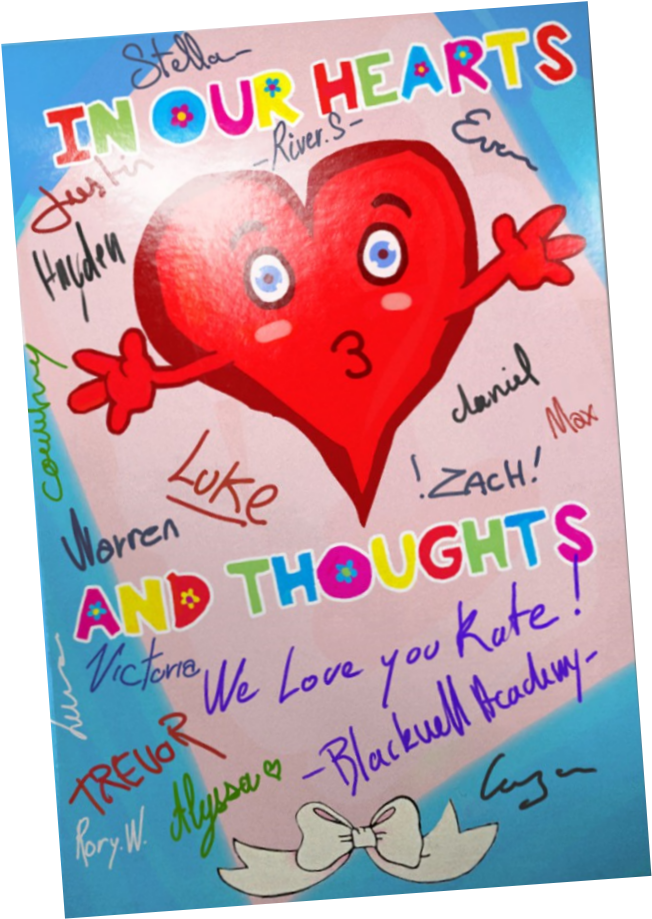 Stella
IN OUR HEARTS
-River.S-
Evan
Justin
Hayden
Courtney
daniel
Max
Luke
!ZACH!
Warren
AND THOUGHTS
Victoria
We Love you Kate!
-Blackwell Academy-
TREVOR
Alyssa
Rory.W.